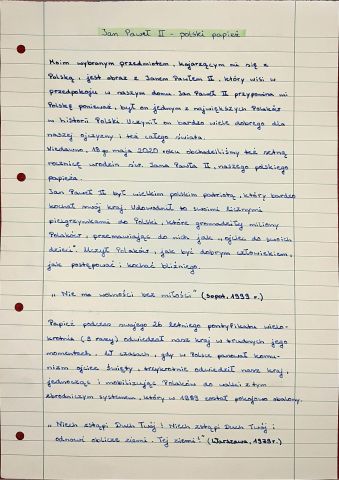 Jan Paweł II - polski papież
Moim wybranym przedmiotem, kojarzącym mi się z
Polską, jest obraz z Janem Pawłem II, który wisi w
przedpokoju w naszym domu. Jan Paweł II przypomina mi
Polskę ponieważ, był on jednym z największych Polaków
w historii Polski. Uczynił on bardzo wiele dobrego dla
naszej ojczyzny i też całego świata.
Niedawno, 18-go maja 2020 roku obchodziliśmy też setną
rocznicę urodzin św. Jana Pawła II, naszego polskiego
papieża.
Jan Paweł II był wielkim polskim patriotą, który bardzo
kochał swój kraj. Udowodnił to swoimi licznymi
pielgrzymkami do Polski, które gromadziły miliony
Polaków, przemawiając do nich jak „ojciec do swoich
dzieci". Uczył Polaków, jak być dobrym człowiekiem,
jak postępować i kochać bliźniego.
„Nie ma wolności bez miłości" (Sopot, 1999 r.)
Papież podczas swojego 26 letniego pontyfikatu wielo-
krotnie (9 razy) odwiedzał nasz kraj w trudnych jego
momentach. W czasach, gdy w Polsce panował komu-
nizm ojciec święty, trzykrotnie odwiedzał nasz kraj,
jednocząc i mobilizując Polaków do walki z tym
zbrodniczym systemem, który w 1989 został pokojowo obalony.
„Niech zstąpi Duch Twój! Niech zstąpi Duch Twój i
odnowi oblicze ziemi. Tej ziemi!" (Warszawa, 1979 r.)